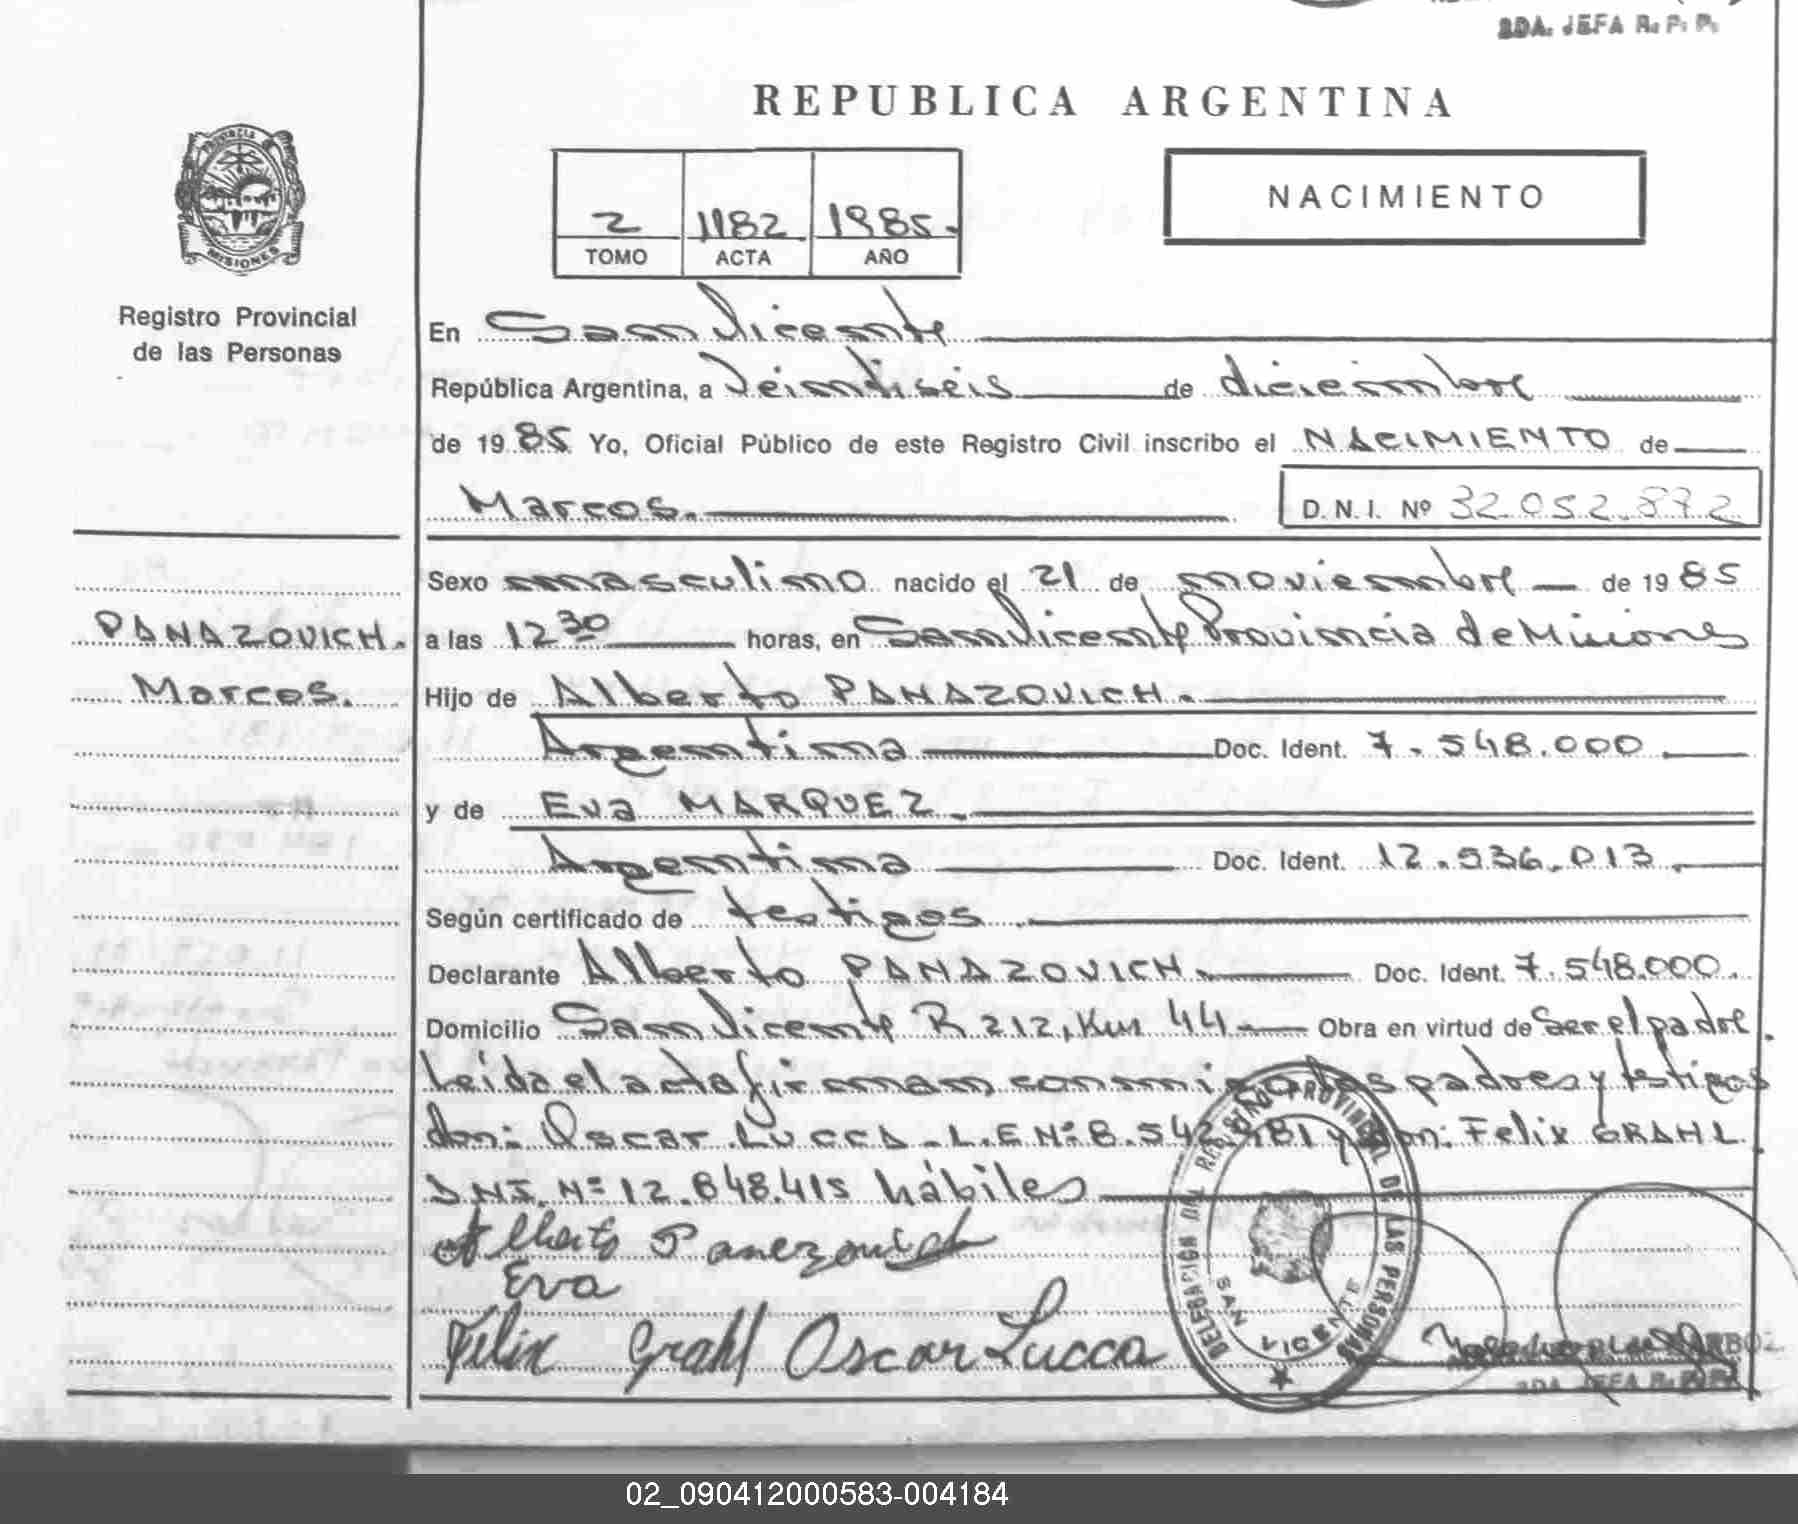 2DA. JEFA R. P. P.
REPUBLICA ARGENTINA
PROVINCIA
MISIONES
Registro Provincial
de las Personas
2 1182 1985.
TOMO ACTA AÑO
NACIMIENTO
En San Vicente
República Argentina, a Veintiseis de diciembre
de 1985 Yo, Oficial Público de este Registro Civil inscribo el NACIMIENTO de
Marcos.
D. N. I. Nº 32.052.872
Sexo masculino nacido el 21 de noviembre de 1985
PANAZOVICH.
a las 12 30 horas, en San Vicente Provincia de Misiones
Marcos.
Hijo de Alberto PANAZOVICH.
Argentina Doc. Ident. 7.548.000
y de Eva MARQUEZ.
Argentina Doc. Ident. 12.536.013.
Según certificado de testigos.
Declarante Alberto PANAZOVICH. Doc. Ident. 7.548.000.
Domicilio San Vicente R 212, Km 44 Obra en virtud de Ser el padre.
Leída el acta firman conmigo los padres y testigos
don: Oscar LUCCA - L.E Nº 8.542. 81 y don: Felix GRAHL.
DNI. Nº 12.848.415 hábiles
Alberto Panezovich
Eva
Felix Grahl Oscar Lucca
DELEGACION DEL REGISTRO PROVINCIAL DE LAS PERSONAS
SAN VICENTE
2DA. JEFA R. P. P.
02_090412000583-004184